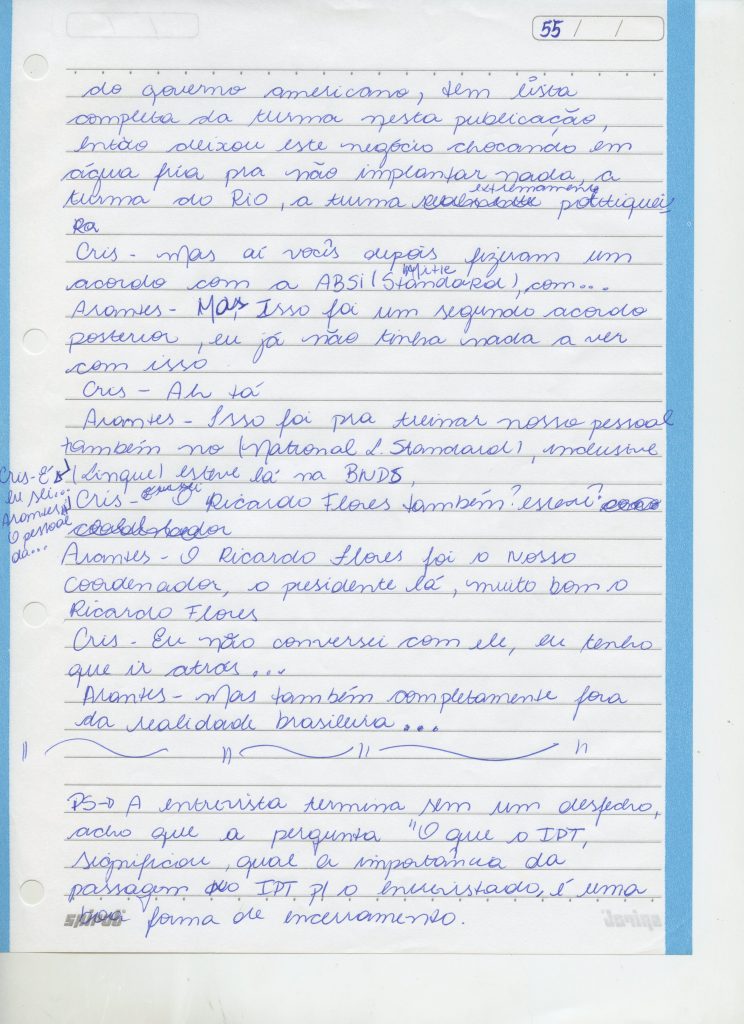 55 / /
do governo americano, tem lista
completa da turma nesta publicação,
então deixou este negócio chocando em
água fria pra não implantar nada, a
turma do Rio, a turma extremamente potiguei
ra
Cris - Mas aí vocês depois fizeram um
acordo com a ABSI (Standard), com...
Arantes - Mas, Isso foi um segundo acordo
posterior, eu já não tinha nada a ver
com isso
Cris - Ah tá
Arantes - Isso foi pra treinar nosso pessoal
também no (National L. Standard), inclusive
(Lingue) esteve lá na BNDS,
Cris - É
eu sei...
Arantes
O pessoal
da...
Cris - O Ricardo Flores também?
Arantes - O Ricardo Flores foi o Nosso
coordenador, o presidente lá, muito bom o
Ricardo Flores
Cris - Eu não conversei com ele, eu tenho
que ir atrás...
Arantes - Mas também completamente fora
da realidade brasileira...
PS→ A entrevista termina sem um desfecho,
acho que a pergunta "O que o IPT,
significou, qual a importância da
passagem no IPT p/ o entrevistado, é uma
boa forma de encerramento.
spiral
spiral